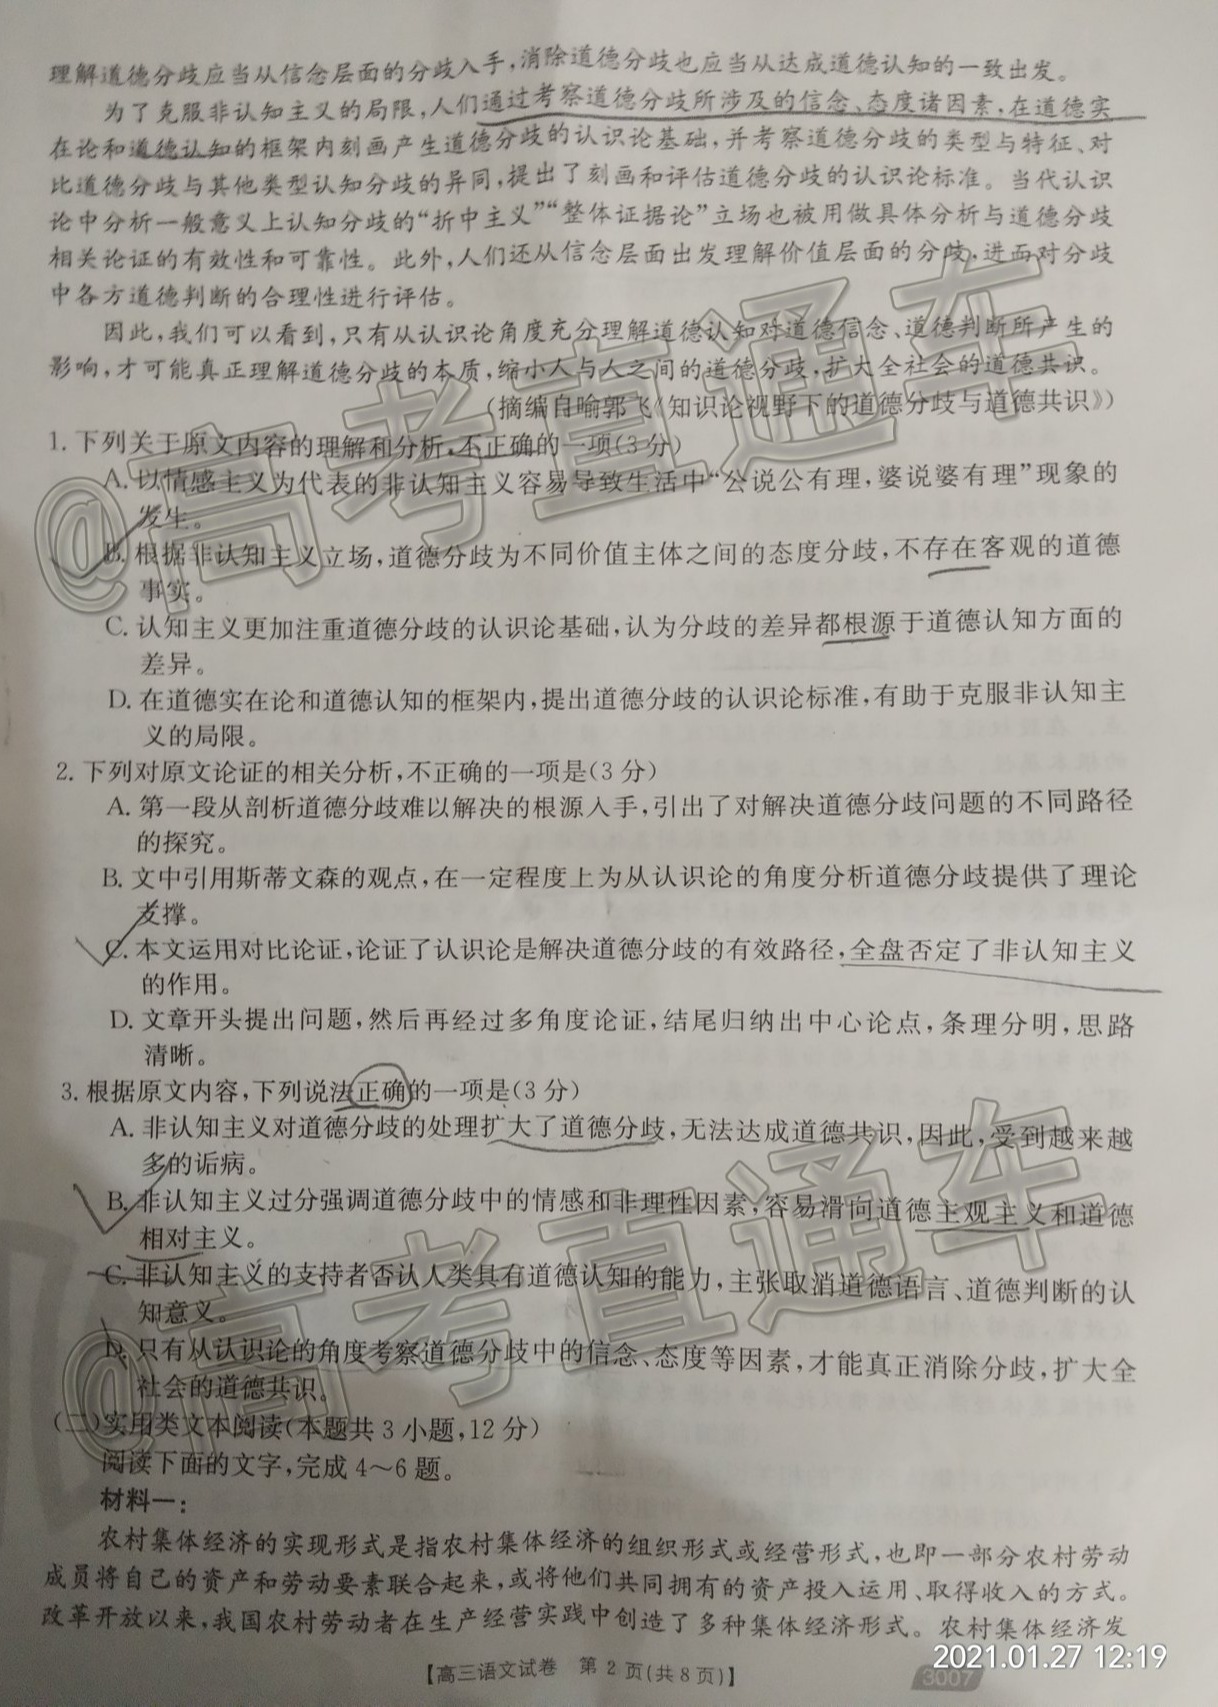 理解道德分歧应当从信念层面的分歧入手,消除道德分歧也应当从达成道德认知的一致出发。
为了克服非认知主义的局限,人们通过考察道德分歧所涉及的信念、态度诸因素,在道德实
在论和道德认知的框架内刻画产生道德分歧的认识论基础,并考察道德分歧的类型与特征、对
比道德分歧与其他类型认知分歧的异同,提出了刻画和评估道德分歧的认识论标准。当代认识
论中分析一般意义上认知分歧的“折中主义”“整体证据论”立场也被用做具体分析与道德分歧
相关论证的有效性和可靠性。此外,人们还从信念层面出发理解价值层面的分歧,进而对分歧
中各方道德判断的合理性进行评估。
因此,我们可以看到,只有从认识论角度充分理解道德认知对道德信念、道德判断所产生的
影响,才可能真正理解道德分歧的本质,缩小人与人之间的道德分歧,扩大全社会的道德共识。
(摘编自喻郭飞《知识论视野下的道德分歧与道德共识》)
1. 下列关于原文内容的理解和分析,不正确的一项(3分)
A. 以情感主义为代表的非认知主义容易导致生活中“公说公有理,婆说婆有理”现象的
发生。
B. 根据非认知主义立场,道德分歧为不同价值主体之间的态度分歧,不存在客观的道德
事实。
C. 认知主义更加注重道德分歧的认识论基础,认为分歧的差异都根源于道德认知方面的
差异。
D. 在道德实在论和道德认知的框架内,提出道德分歧的认识论标准,有助于克服非认知主
义的局限。
2. 下列对原文论证的相关分析,不正确的一项是(3分)
A. 第一段从剖析道德分歧难以解决的根源入手,引出了对解决道德分歧问题的不同路径
的探究。
B. 文中引用斯蒂文森的观点,在一定程度上为从认识论的角度分析道德分歧提供了理论
支撑。
C. 本文运用对比论证,论证了认识论是解决道德分歧的有效路径,全盘否定了非认知主义
的作用。
D. 文章开头提出问题,然后再经过多角度论证,结尾归纳出中心论点,条理分明,思路
清晰。
3. 根据原文内容,下列说法正确的一项是(3分)
A. 非认知主义对道德分歧的处理扩大了道德分歧,无法达成道德共识,因此,受到越来越
多的诟病。
B. 非认知主义过分强调道德分歧中的情感和非理性因素,容易滑向道德主观主义和道德
相对主义。
C. 非认知主义的支持者否认人类具有道德认知的能力,主张取消道德语言、道德判断的认
知意义。
D. 只有从认识论的角度考察道德分歧中的信念、态度等因素,才能真正消除分歧,扩大全
社会的道德共识。
(二)实用类文本阅读(本题共3小题,12分)
阅读下面的文字,完成4~6题。
材料一:
农村集体经济的实现形式是指农村集体经济的组织形式或经营形式,也即一部分农村劳动
成员将自己的资产和劳动要素联合起来,或将他们共同拥有的资产投入运用、取得收入的方式。
改革开放以来,我国农村劳动者在生产经营实践中创造了多种集体经济形式。农村集体经济发
【高三语文试卷 第2页(共8页)】
3007
2021.01.27 12:19
@高考直通车
@高考直通车